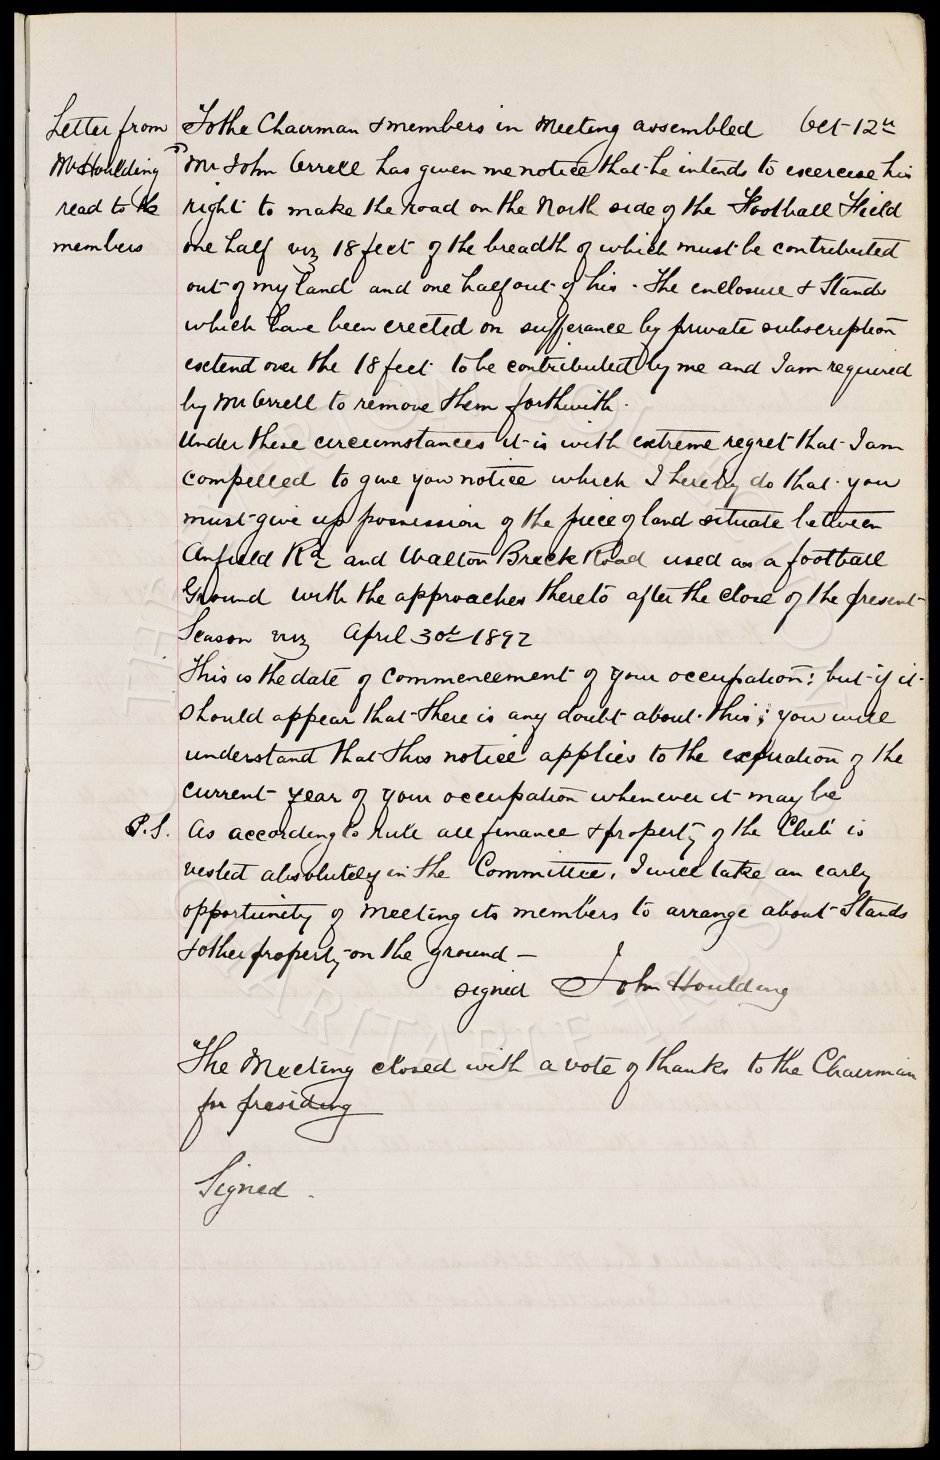 Letter from
Mr Houlding
read to the
members
To the Chairman & members in Meeting assembled Oct 12th
Mr John Orrell has given me notice that he intends to exercise his
right to make the road on the North side of the Football Field
one half viz 18 feet of the breadth of which must be contributed
out of my land and one half out of his. The enclosure & Stands
which have been erected on sufferance by private subscription
extend over the 18 feet to be contributed by me and I am required
by Mr Orrell to remove them forthwith.
Under these circumstances it is with extreme regret that I am
compelled to give you notice which I hereby do that you
must give up possession of the piece of land situate between
Anfield Rd and Walton Breck Road used as a football
Ground with the approaches thereto after the close of the present
Season viz April 30th 1892
This is the date of commencement of your occupation: but if it
should appear that there is any doubt about this; you will
understand that this notice applies to the expiration of the
current year of your occupation whenever it may be
P.S. As according to rule all finance & property of the Club is
vested absolutely in the Committee, I will take an early
opportunity of meeting its members to arrange about Stands
& other property on the ground —
signed John Houlding
The Meeting closed with a vote of thanks to the Chairman
for presiding
Signed.